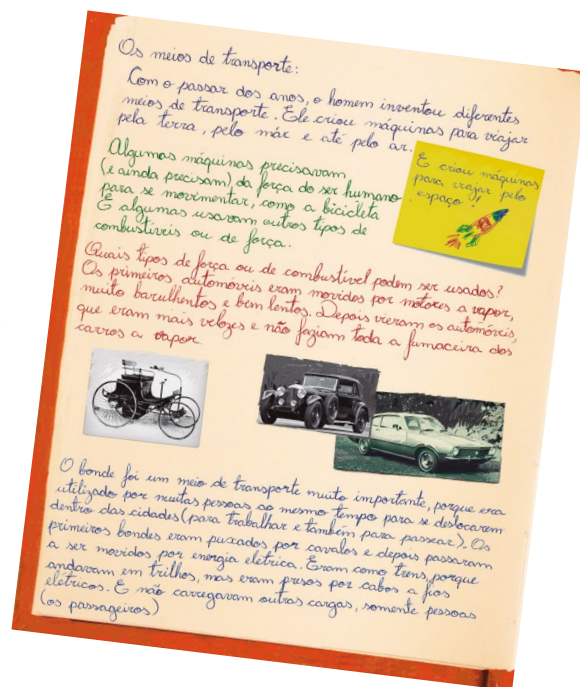 Os meios de transporte:
Com o passar dos anos, o homem inventou diferentes
meios de transporte. Ele criou máquinas para viajar
pela terra, pelo mar e até pelo ar.
E criou máquinas
para viajar pelo
espaço!
Algumas máquinas precisavam
(e ainda precisam) da força do ser humano
para se movimentar, como a bicicleta
E algumas usavam outros tipos de
combustíveis ou de força.
Quais tipos de força ou de combustível podem ser usados?
Os primeiros automóveis eram movidos por motores a vapor,
muito barulhentos e bem lentos. Depois vieram os automóveis,
que eram mais velozes e não faziam toda a fumaceira dos
carros a vapor
O bonde foi um meio de transporte muito importante, porque era
utilizado por muitas pessoas ao mesmo tempo para se deslocarem
dentro das cidades (para trabalhar e também para passear). Os
primeiros bondes eram puxados por cavalos e depois passaram
a ser movidos por energia elétrica. Eram como trens, porque
andavam em trilhos, mas eram presos por cabos a fios
elétricos. E não carregavam outras cargas, somente pessoas
(os passageiros)